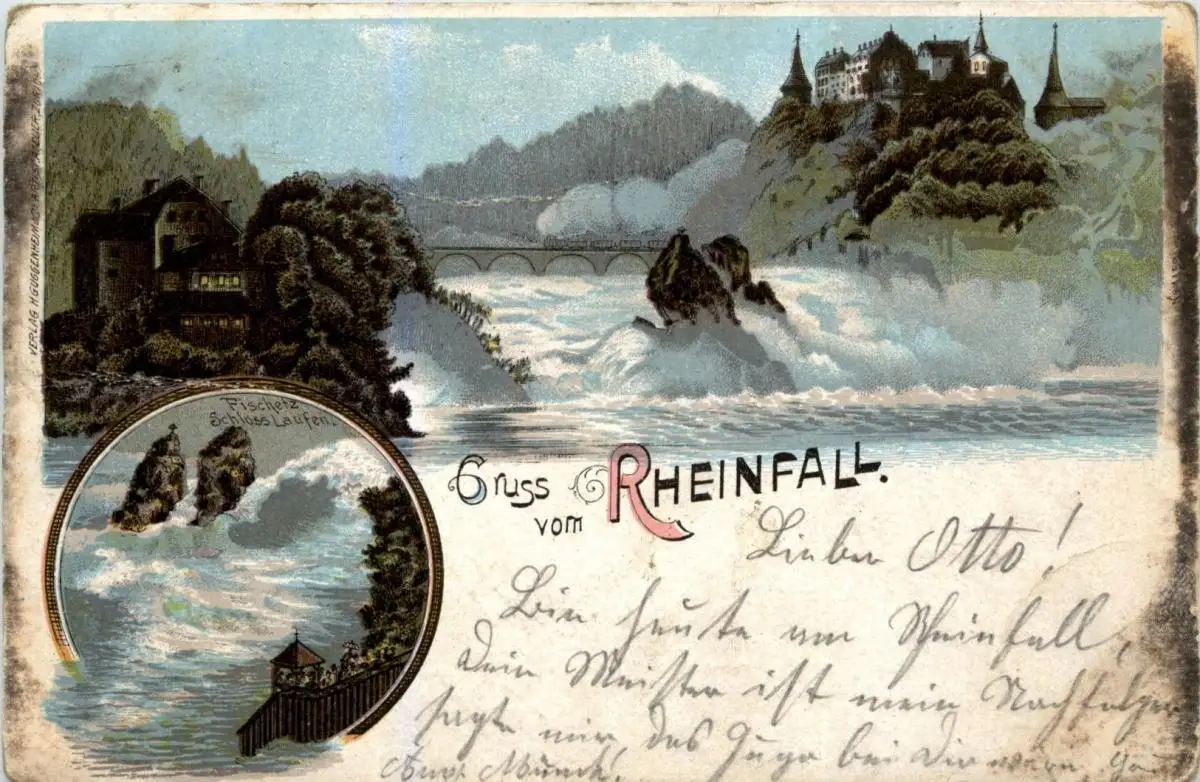 VERLAG H. GUGGENHEIM & Co.
Fischetz
Schloss Laufen.
Gruss
vom RHEINFALL.
Lieber Otto!
Bin heute am Rheinfall,
Dein Meister ist mein Nachfolger
sagt mir, das bei Dir